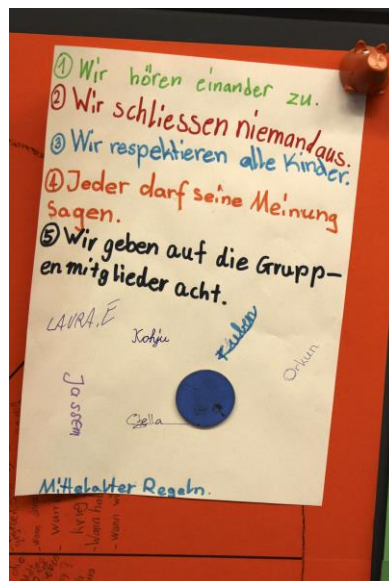 ① Wir hören einander zu.
② Wir schliessen niemand aus.
③ Wir respektieren alle Kinder.
④ Jeder darf seine Meinung
sagen.
⑤ Wir geben auf die Grupp-
en mitglieder acht.
LAURA.E
Kohju
Ruben
Orkun
Jassem
Stella
Mittelalter Regeln.